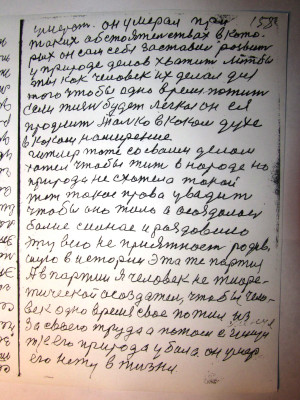 умерот. он умерал при 158
таких обстоятельствах в кото-
рых он сам себя заставил
у природе делов хватит лит бы
ты как человек их делал для
того чтобы одно время пожит
если жизн будет легка он ея
продлит Только в каком духе
в каком намерение
гитлер тоже со своими делом
хотел чтобы жит в народе но
природа не схотела такой
жит такое права увидит
чтобы оно жило а
более силное и
эту всю не приятност
в истории Эта те партия
А в партии я человек не теоре-
тической чтобы чело-
век одно время свое пожил из
За своего труда а потом с
его природа убала он умер
его нету в жизни